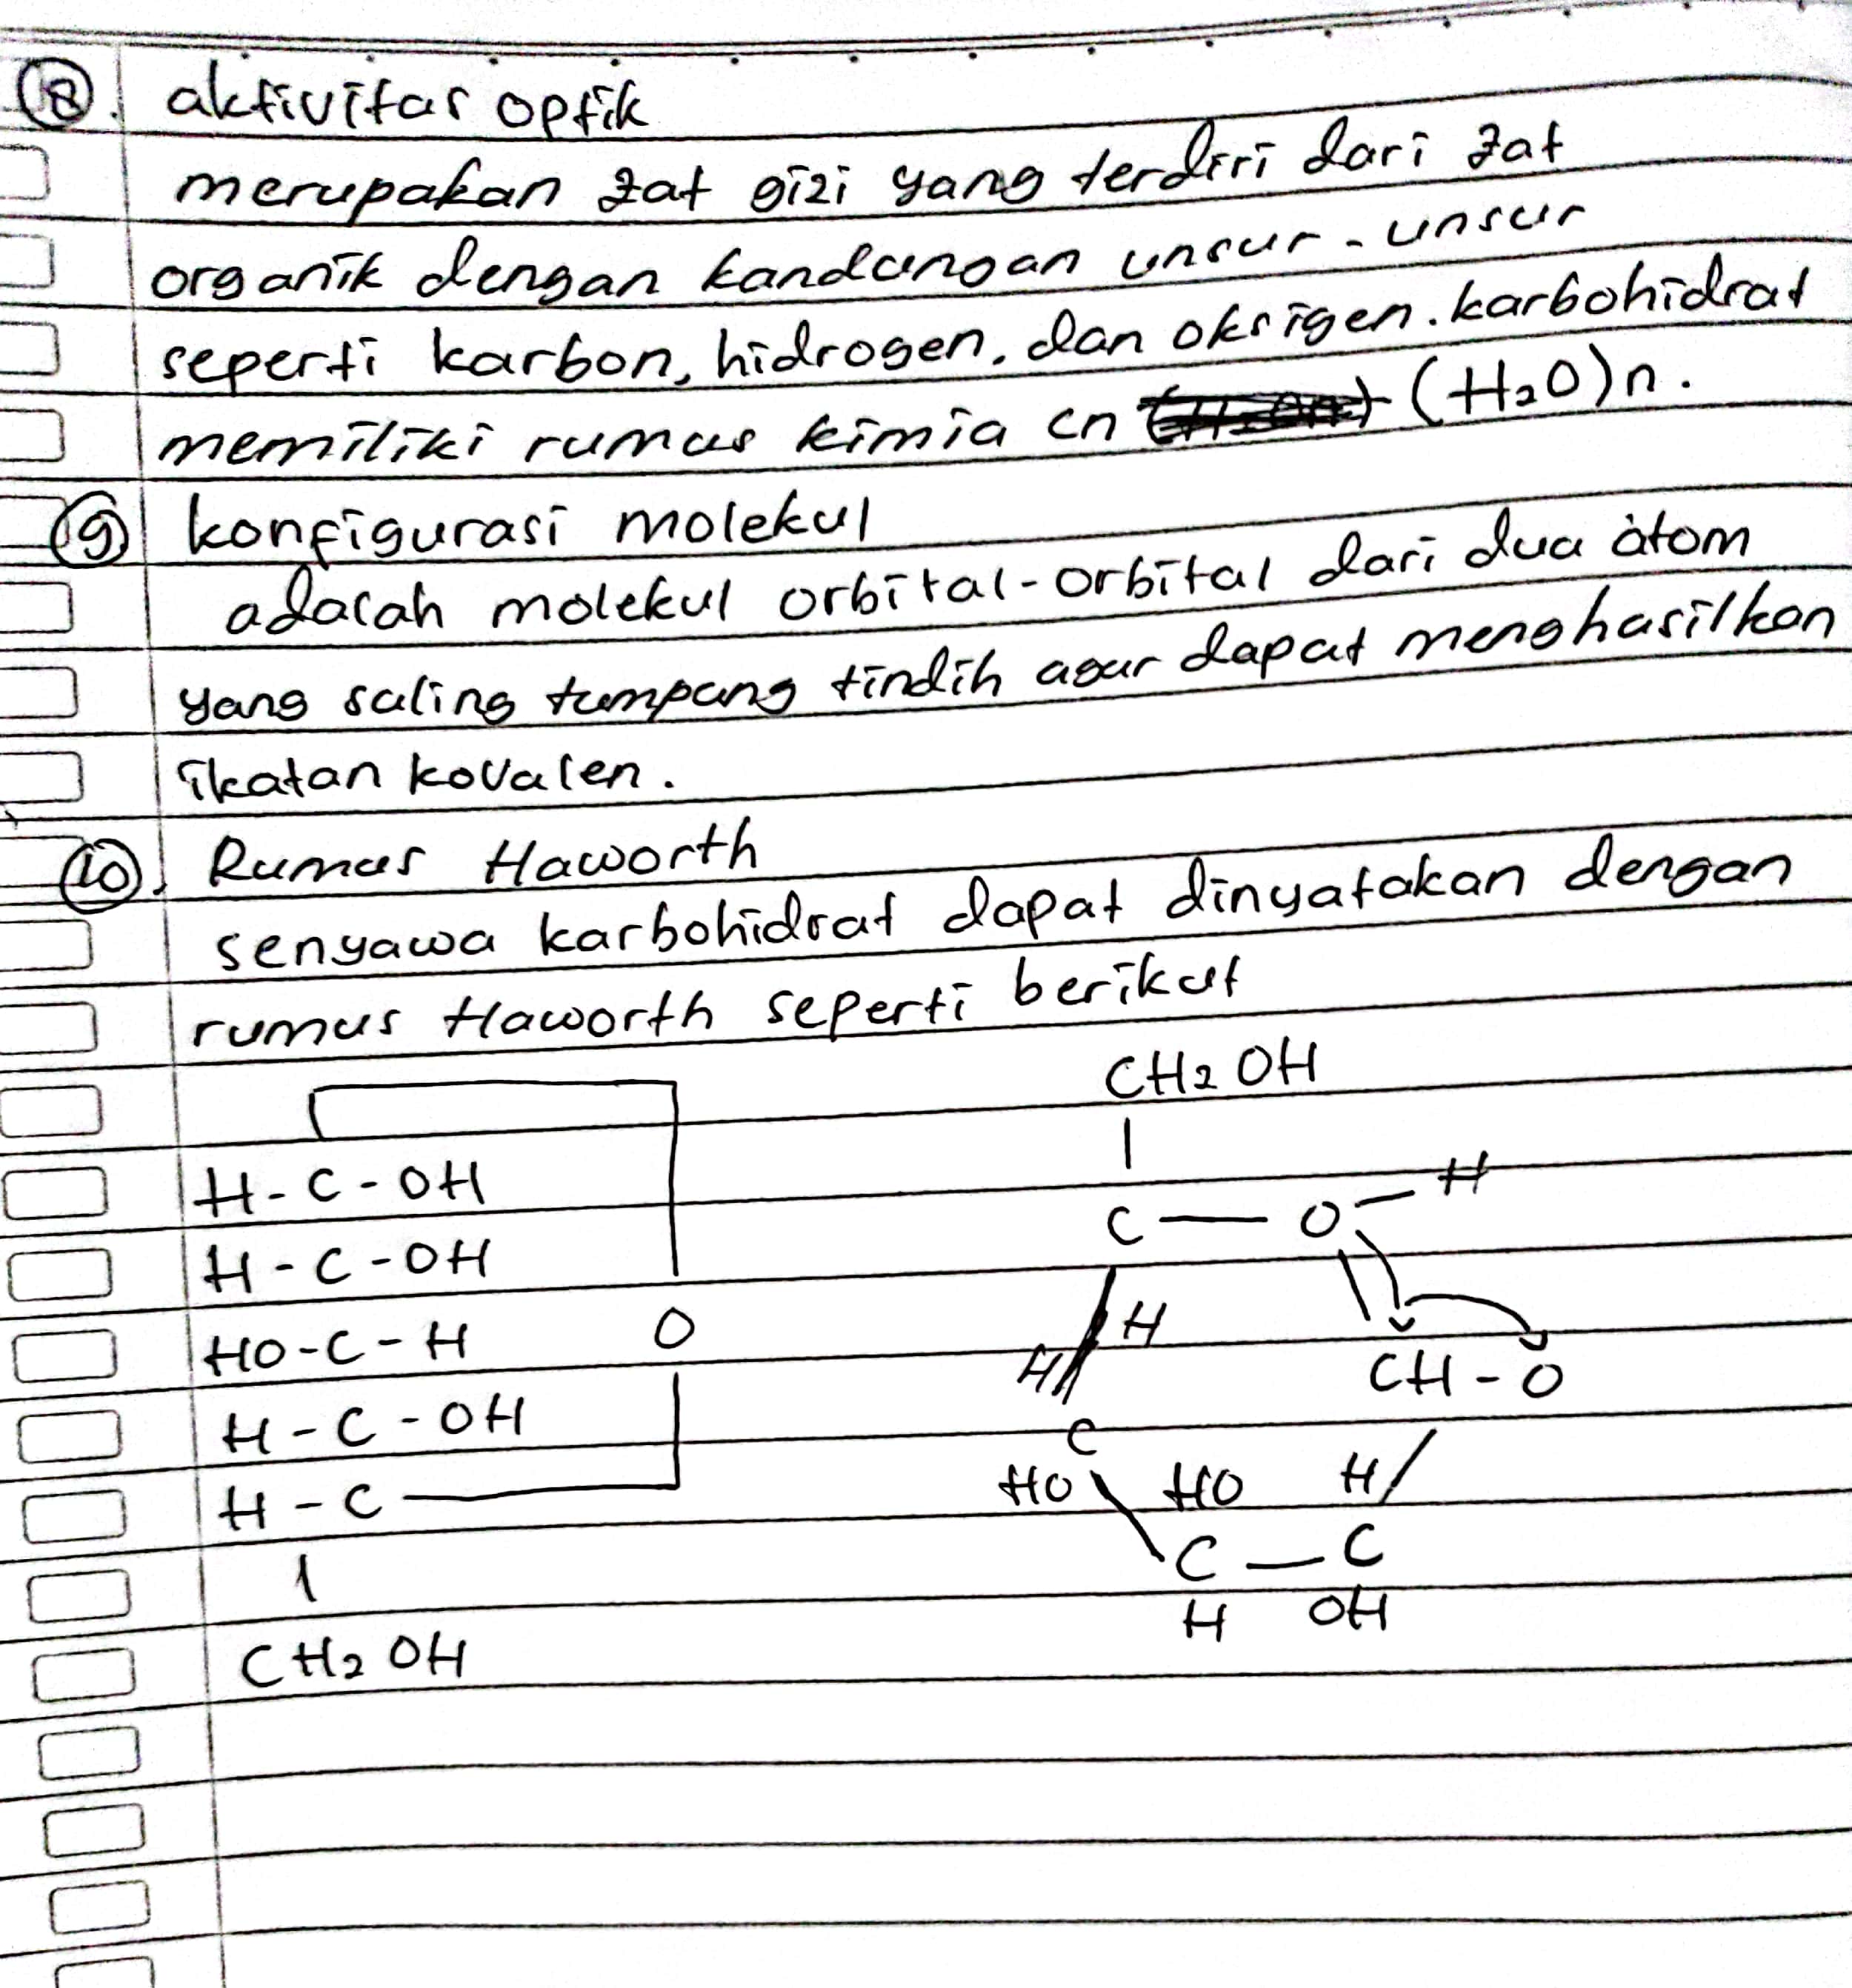 8. aktivitas optik
merupakan zat gizi yang terdiri dari zat
organik dengan kandungan unsur-unsur
seperti karbon, hidrogen, dan oksigen. karbohidrat
memiliki rumus kimia cn (H2O)n.
9 konfigurasi molekul
adalah molekul orbital-orbital dari dua atom
yang saling tumpang tindih agar dapat menghasilkan
ikatan kovalen.
10. Rumus Haworth
senyawa karbohidrat dapat dinyatakan dengan
rumus Haworth seperti berikut
H-C-OH
H-C-OH
HO-C-H O
H-C-OH
H-C
CH2OH
CH2OH
C — O — H
H
H
CH-O
C
HO HO H
C — C
H OH